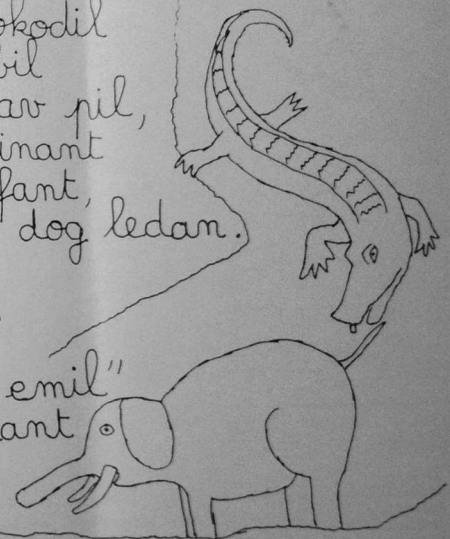 okodil
bil
av pil,
inant
fant,
dog ledan.
emil"
ant